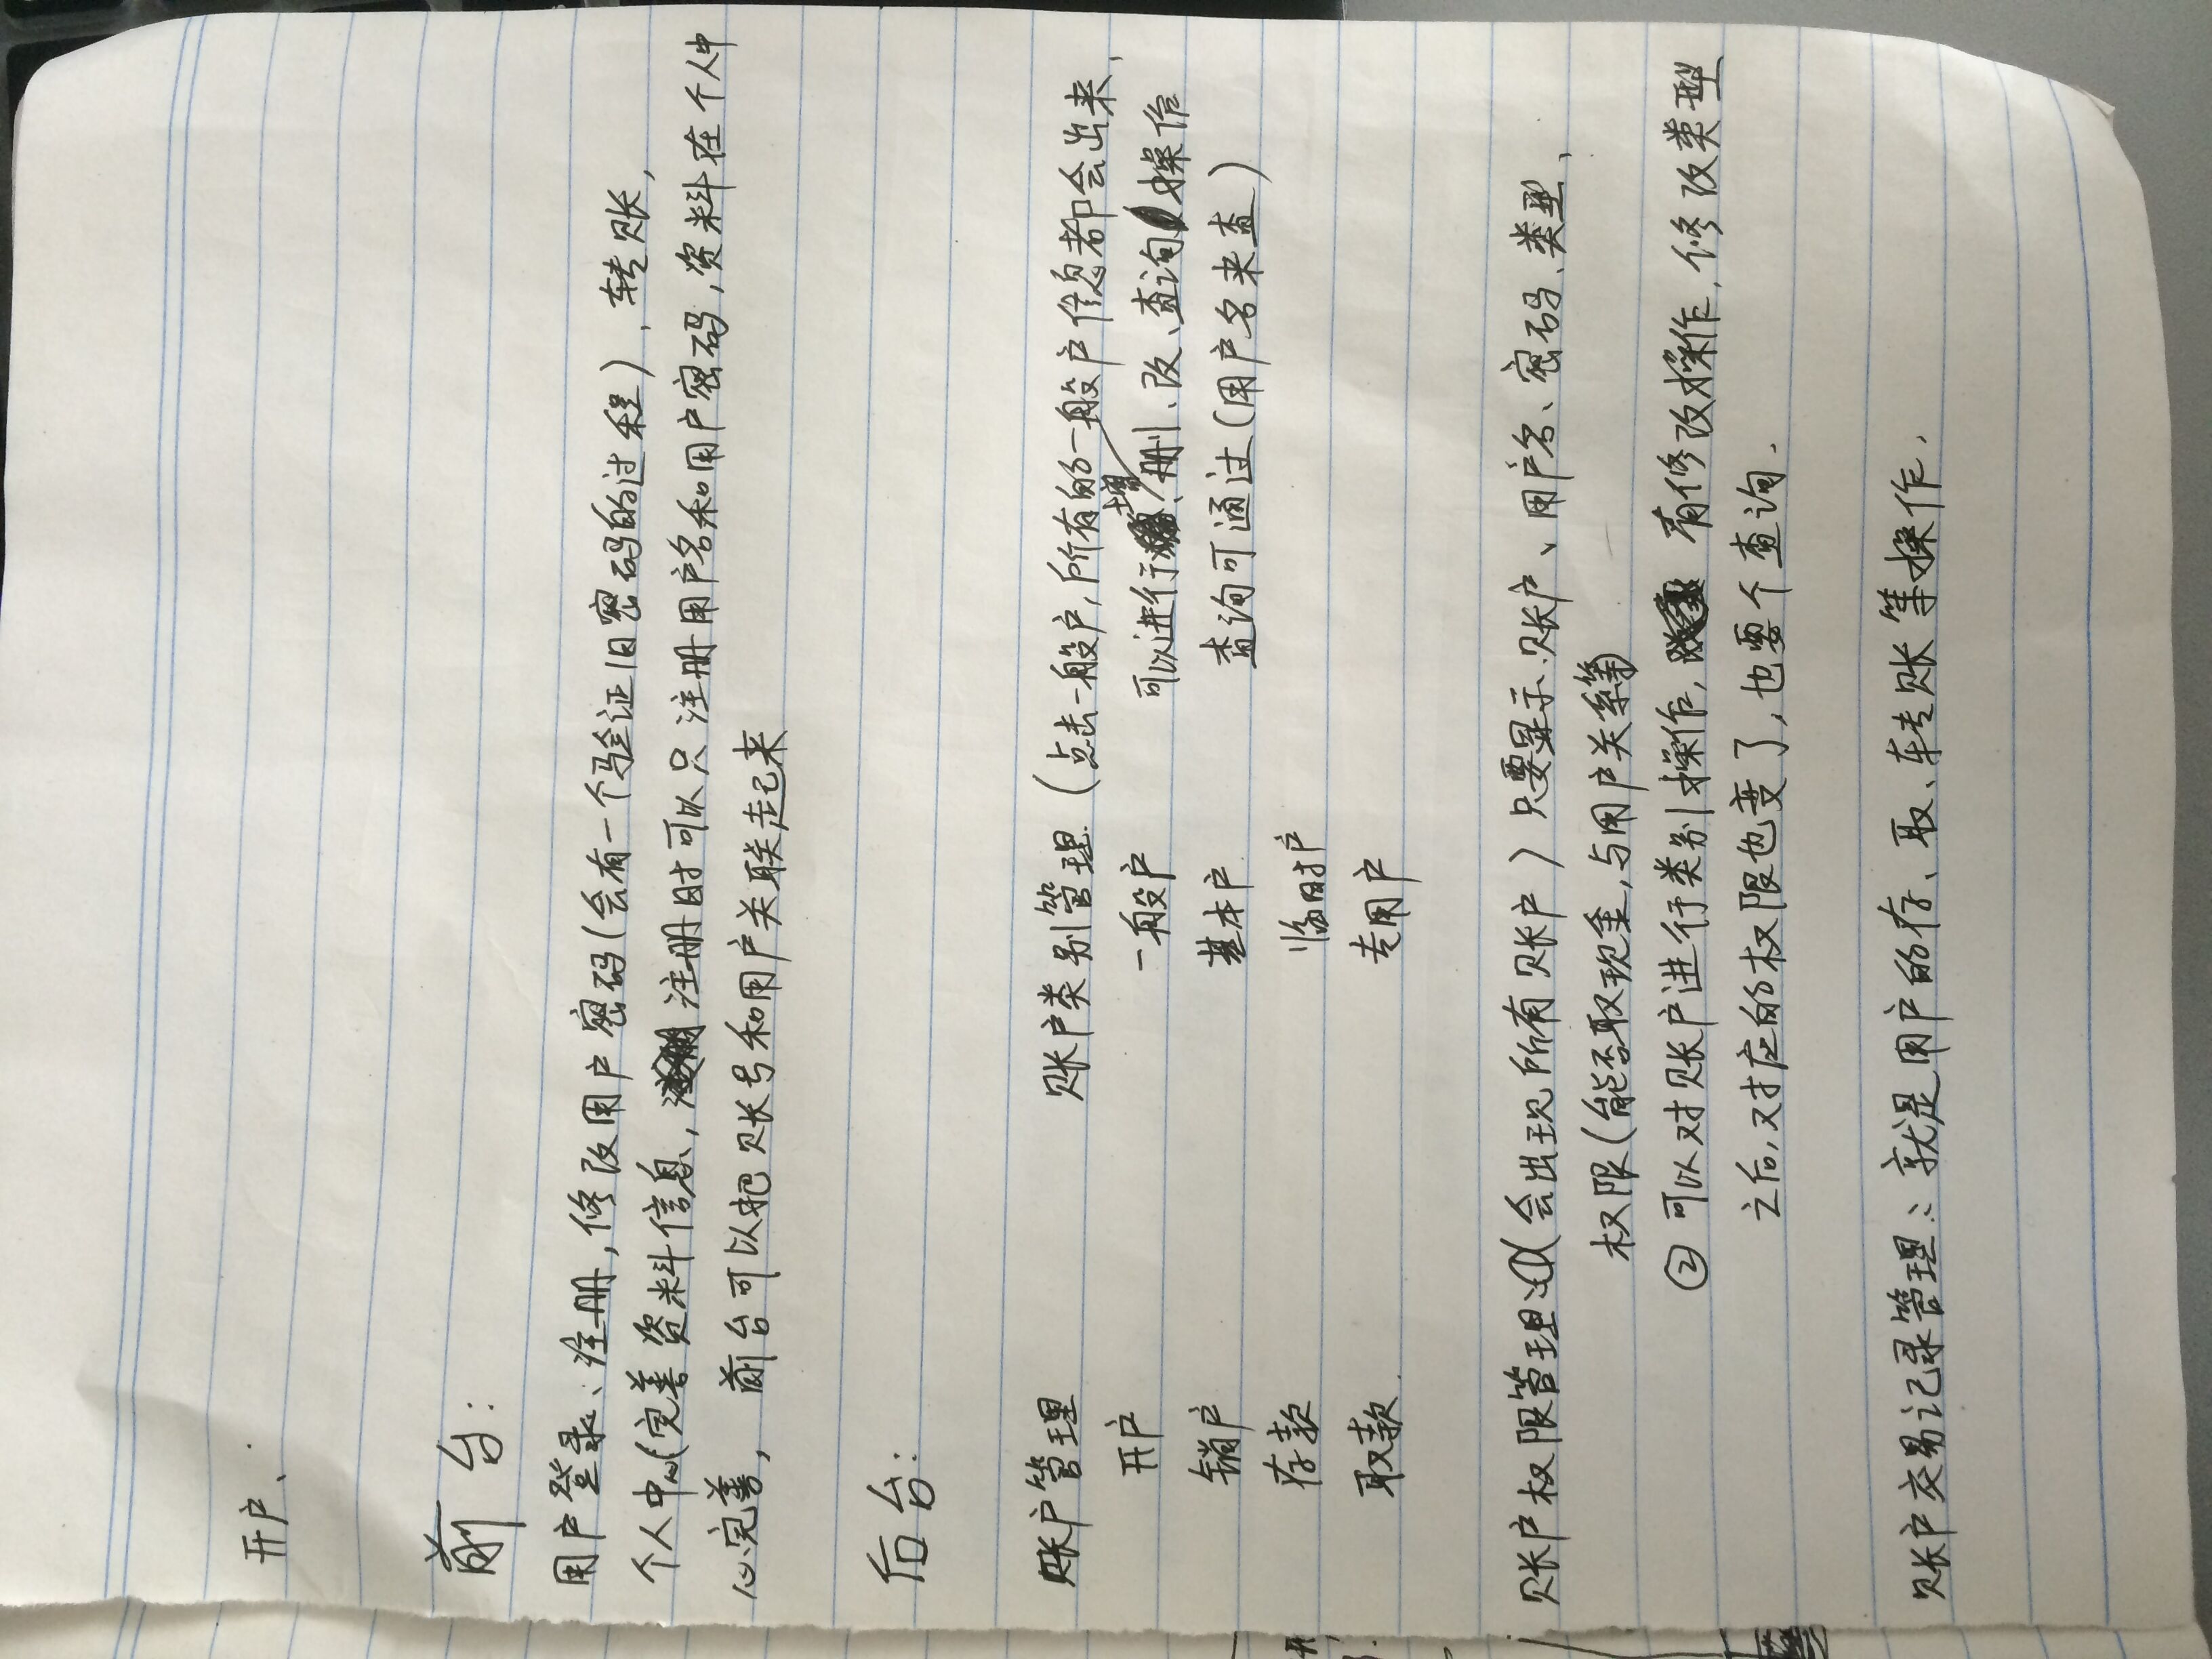 开户、
前台：
用户登录、注册，修改用户密码（会有一个验证旧密码的过程）、转账，
个人中心（完善资料信息，注册时可以只注册用户名和用户密码，资料在个人中
心完善，前台可以把账号和用户关联起来
后台：
账户管理
开户
销户
存款
取款
账户类别管理（点击一般户，所有的一般户信息都会出来，
可以进行增、删、改、查询操作
查询可通过（用户名来查）
一般户
基本户
临时户
专用户
账户权限管理：（会出现所有账户）只要显示：账户、用户名、密码、类型、
权限（能否取现金，与用户关系等）
② 可以对账户进行类别操作，有修改操作，修改类型
之后，对应的权限也变了，也要个查询．
账户交易记录管理：就是用户的存、取、转账等操作．